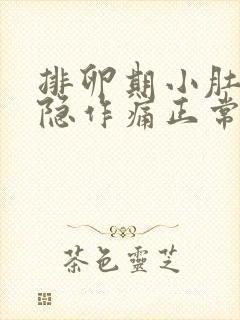 排卵期小肚
隐作痛正常
茶色靈芝